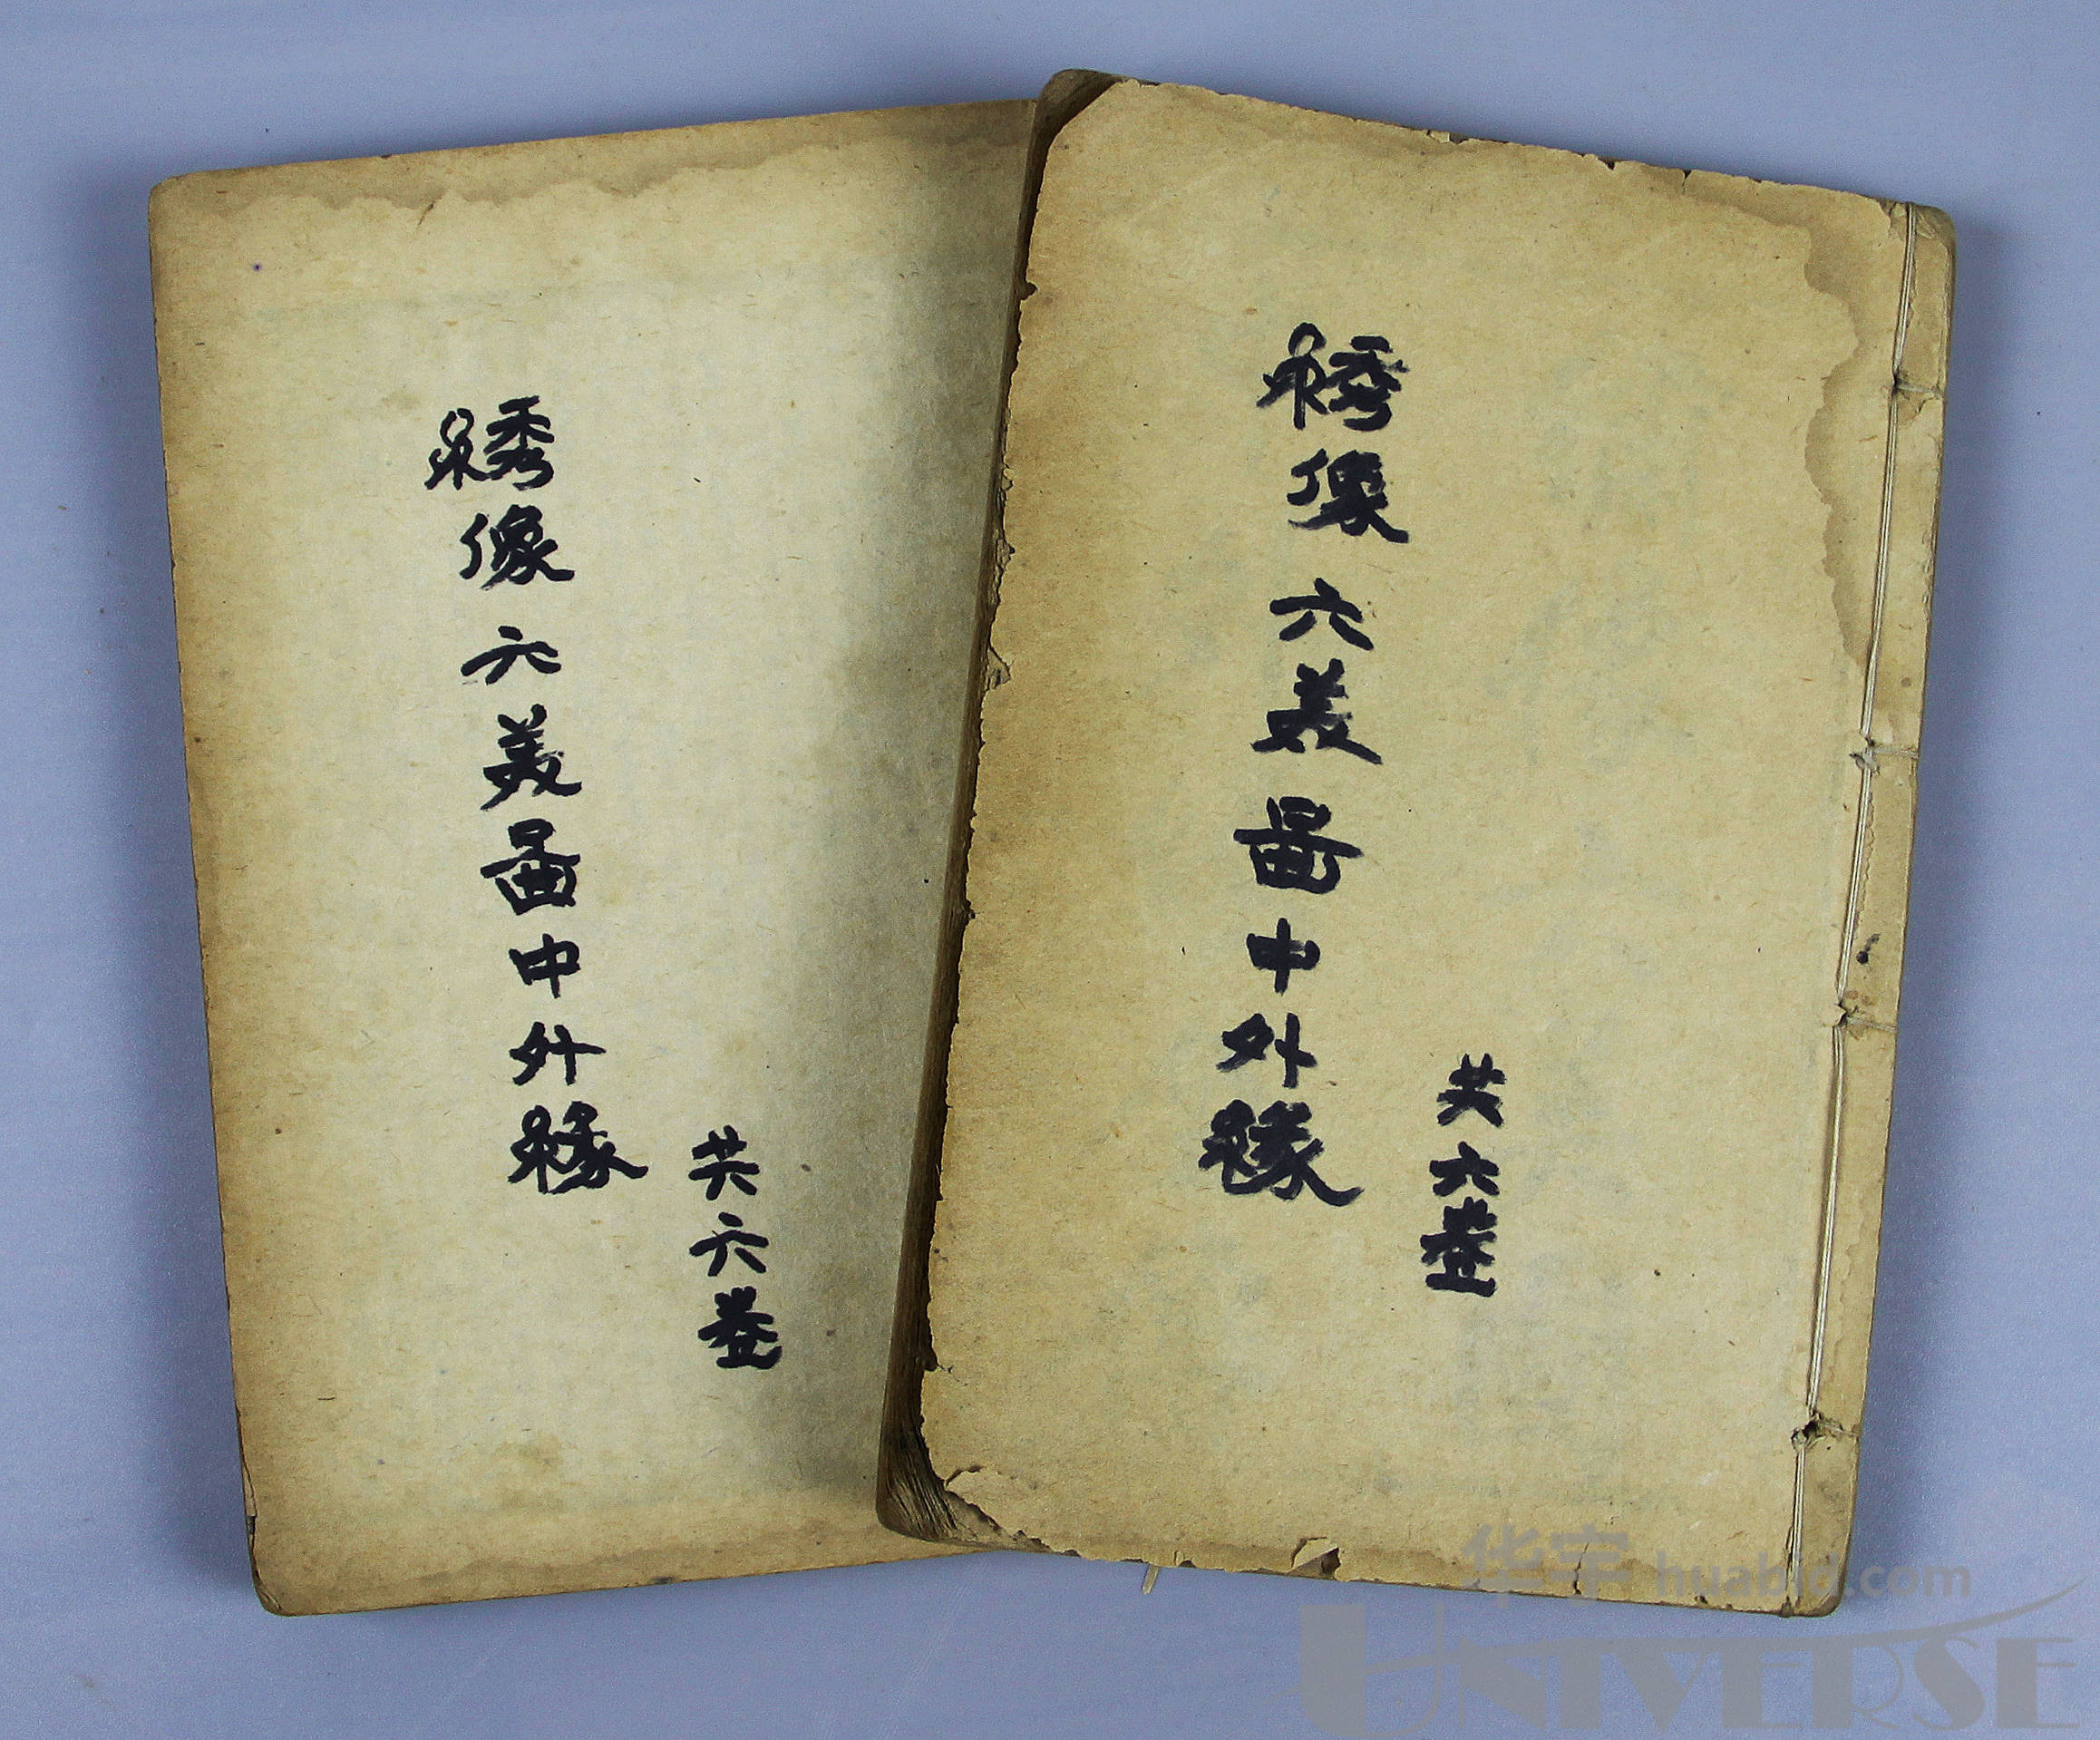 綉像六美啚中外緣
共六卷
綉像六美啚中外緣
共六卷
华宇 huabid.com
UNIVERSE